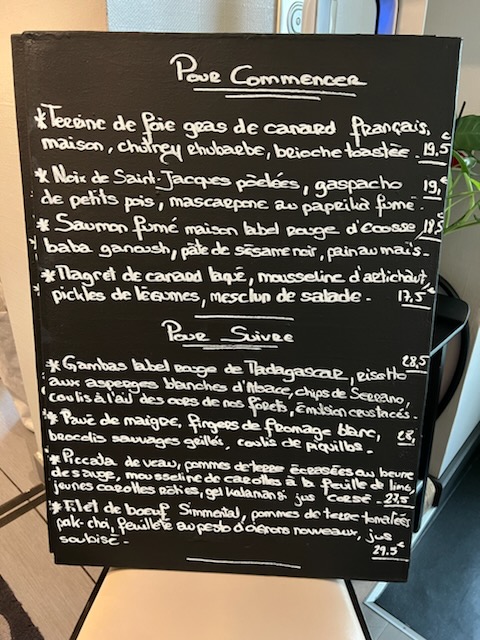 Pour Commencer
*Terrine de foie gras de canard français,
maison, chutney rhubarbe, brioche toastée. 19,5€
*Noix de Saint-Jacques poêlées, gaspacho 19,€
de petits pois, mascarpone au paprika fumé.
*Saumon fumé maison label rouge d'écosse 18,5€
baba ganoush, pâte de sésame noir, pain au maïs.
*Magret de canard laqué, mousseline d'artichaut,
pickles de légumes, mesclun de salade. 17,5€
Pour Suivre
*Gambas label rouge de Madagascar, Risotto 28,5€
aux asperges blanches d'Alsace, chips de Serrano,
coulis à l'ail des ours de nos forêts, émulsion crustacés.
*Pavé de maigre, fingers de fromage blanc, 28,€
brocolis sauvages grillés, coulis de piquillos.
*Piccata de veau, pommes de terre écrasées au beurre
de sauge, mousseline de carottes à la feuille de lime,
jeunes carottes rôties, gel kalamansi jus corsé. 27,5€
*Filet de boeuf Simmental, pommes de terre tomatées
pak-choï, feuilleté au pesto d'oignons nouveaux, jus
soubise. 29,5€